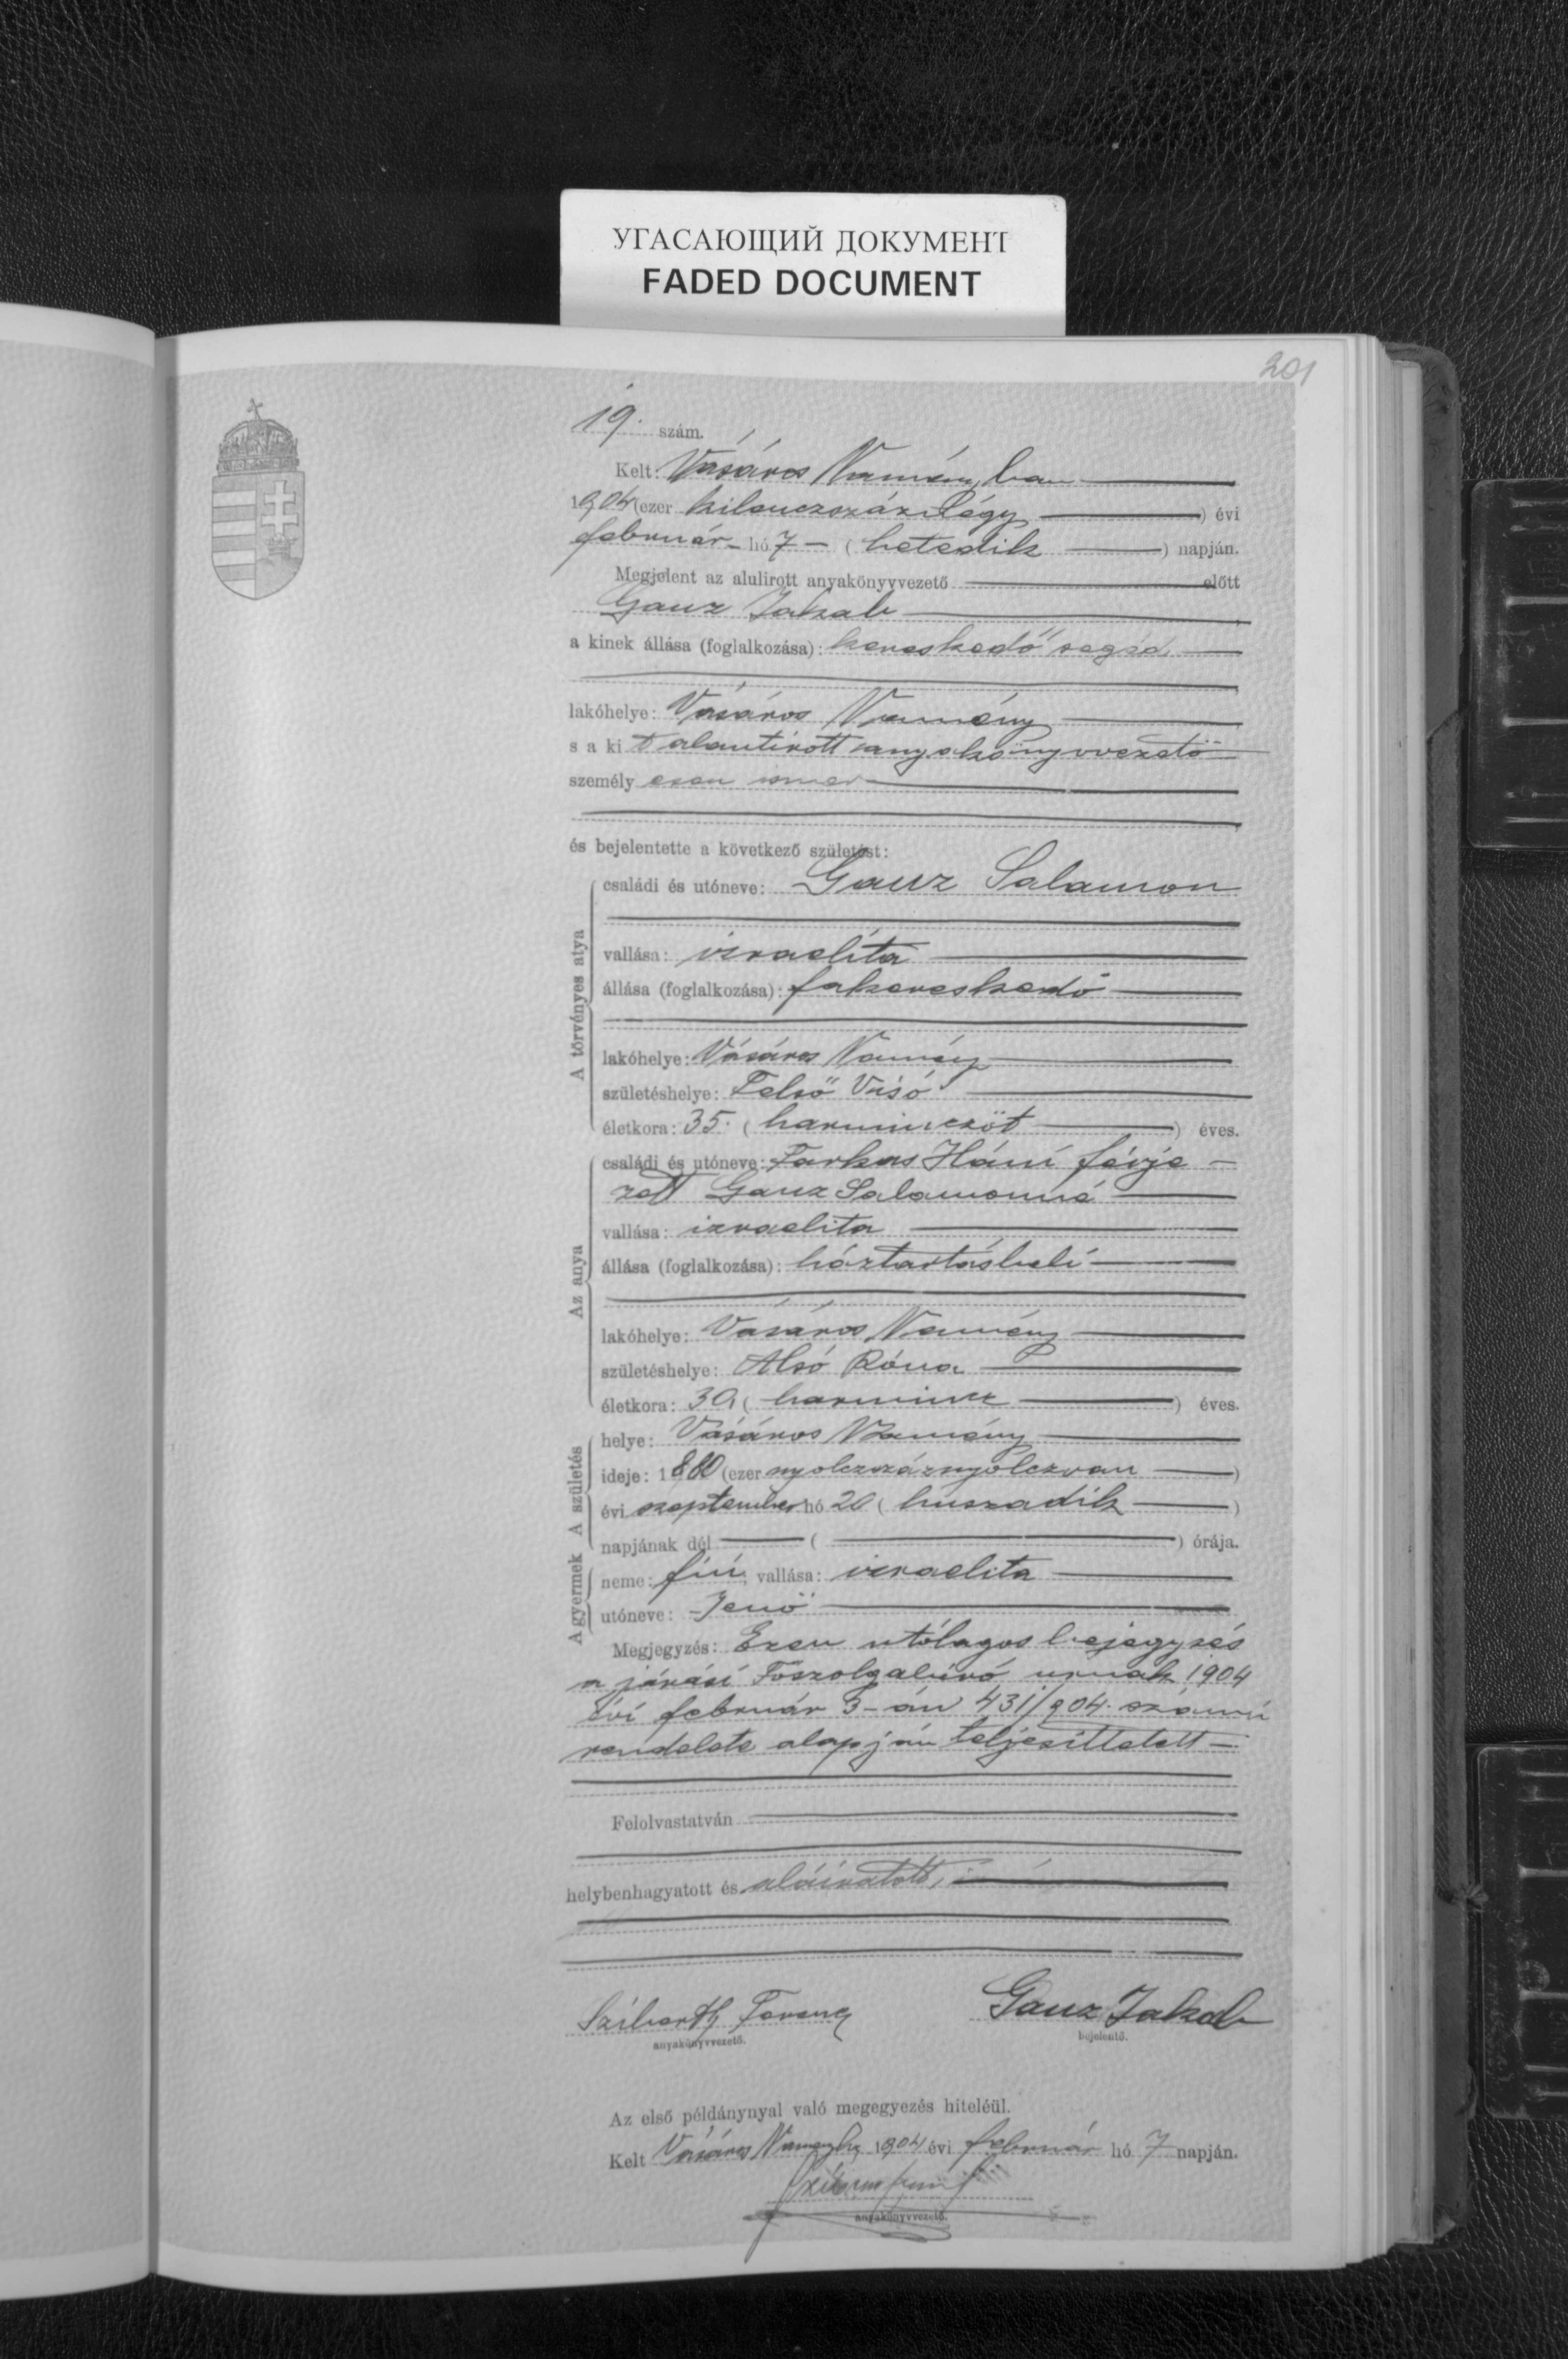 УГАСАЮЩИЙ ДОКУМЕНТ
FADED DOCUMENT
201
19. szám.
Kelt: Vásáros Namény ban
1904 (ezer kilenczszáznégy) évi
február hó 7 (hetedik) napján.
Megjelent az alulirott anyakönyvvezető előtt
Ganz Jakab
a kinek állása (foglalkozása): kereskedő segéd
lakóhelye: Vásáros Namény
s a kit alantirott anyakönyvvezető
személy esen ismer
és bejelentette a következő születést:
A törvényes atya
családi és utóneve: Ganz Salamon
vallása: izraelita
állása (foglalkozása): fakereskedő
lakóhelye: Vásáros Namény
születéshelye: Felső Visó
életkora: 35. (harminczöt) éves.
Az anya
családi és utóneve: Farkas Háni férje
zett Ganz Salamonné
vallása: izraelita
állása (foglalkozása): háztartásbeli
lakóhelye: Vásáros Namény
születéshelye: Alsó Róna
életkora: 30 (harmincz) éves.
A születés
helye: Vásáros Namény
ideje: 1880 (ezer nyolczszáznyolczvan)
évi szeptember hó 20 (huszadik)
napjának dél ( ) órája.
A gyermek
neme: fiú, vallása: izraelita
utóneve: Jenő
Megjegyzés: Ezen utólagos bejegyzés
a járási Főszolgabíró urnak 1904
évi február 3-án 431/904. számú
rendelete alapján teljesittetett
Felolvastatván
helybenhagyatott és aláiratott,
Sziberth Ferencz Ganz Jakab
anyakönyvvezető. bejelentő.
Az első példánynyal való megegyezés hiteléül.
Kelt Vásáros Namény 1904 évi február hó 7 napján.
anyakönyvvezető.